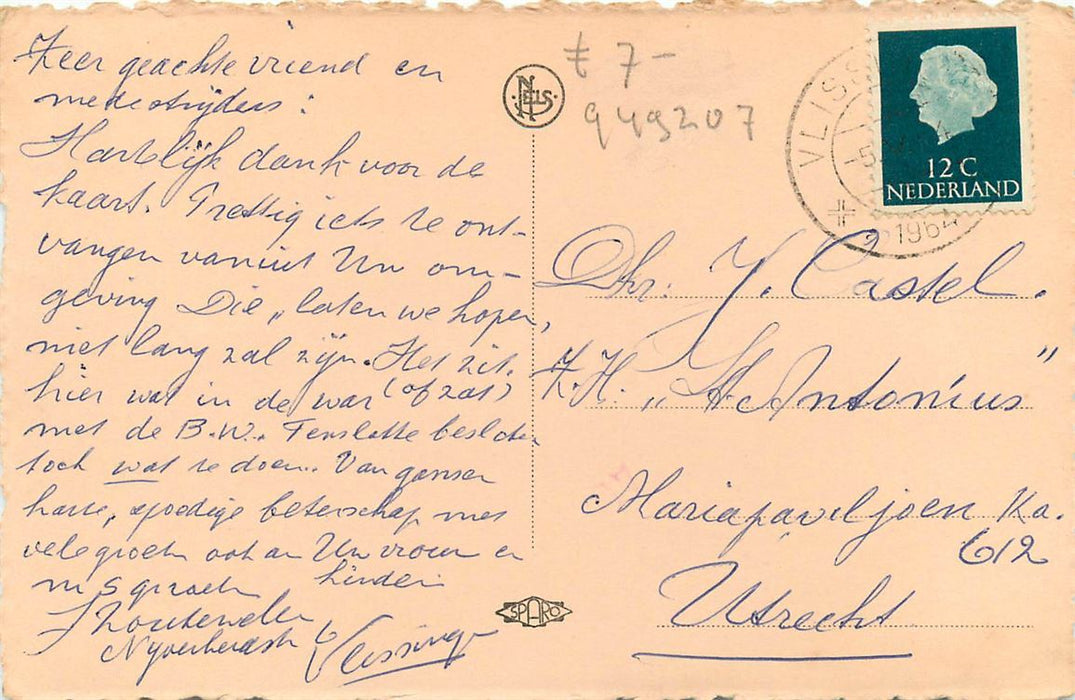 Zeer geachte vriend en
medestrijders:
Hartelijk dank voor de
kaart. Prettig iets te ont-
vangen vanuit Uw om-
geving Die „laten we hopen,
niet lang zal zijn. Het zit
hier wat in de war (of zat)
met de B.W. Tenslotte besloten
toch wat te doen. Van ganser
harte, spoedige beterschap met
vele groeten ook aan Uw vrouw en
kinderen
m S groeten
Vlissingen
NELS
£ 7-
949207
VLISS
-5
1964
12 C
NEDERLAND
Dhr. J. Castel.
Z.H. „St. Antonius"
Mariapaviljoen Ka.
612
Utrecht
SPARO